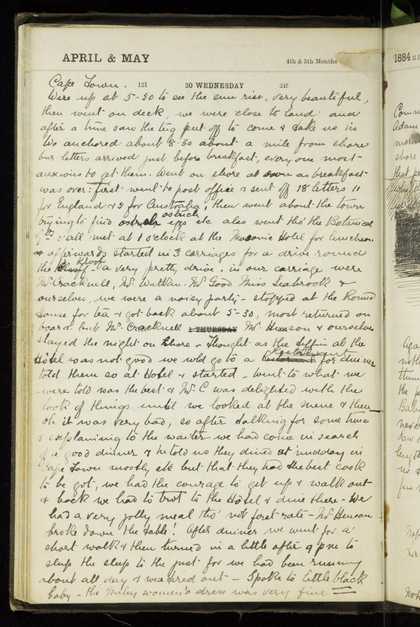 APRIL & MAY
4th & 5th Months
1884
Cape Town. 121 30 WEDNESDAY 247
Were up at 5-30 to see the sun rise, very beautiful,
then went on deck, we were close to land and
after a time saw the tug put off to come & take us in
We anchored about 8.30 about a mile from shore
our letters arrived just before breakfast, every one most
anxious to get them. Went on shore as soon as breakfast
was over: first went to post office & sent off 18 letters 11
for England & 3 for Australia, then went about the town
trying to find ostrich eggs etc also went thro' the Botanical
Gds: all met at 1 o'clock at the Masonic Hotel for luncheon
& afterwards started in 3 carriages for a drive round
the Kloof - a very pretty drive. in our carriage were
Mr Cracknell, Mr Watkin Mr Good Miss Seabrook &
ourselves, we were a noisy party - stopped at the Round
House for tea & got back about 5-30, most returned on
board but Mr Cracknell 1 THURSDAY Mr Henson & ourselves
stayed the night on shore - Thought as the tiffin at the
Hotel was not good we wld go to a for dinner
told them so at Hotel & started - went to what we
were told was the best & Mr C was delighted with the
look of things until we looked at the menu & then
oh it was very bad, so after talking for some time
& explaining to the waiter we had come in search
of a good dinner & he told us they dined at midday in
Cape Town mostly etc but that they had the best cook
to be got, we had the courage to get up & walk out
& back we had to trot to the Hotel & dine there - We
had a very jolly meal tho' not first rate - Mr Henson
broke down the table! After dinner we went for a
short walk & then turned in a little after 9 pm to
sleep the sleep of the just for we had been running
about all day & were tired out - Spoke to little black
baby - the Malay women's dress was very fine